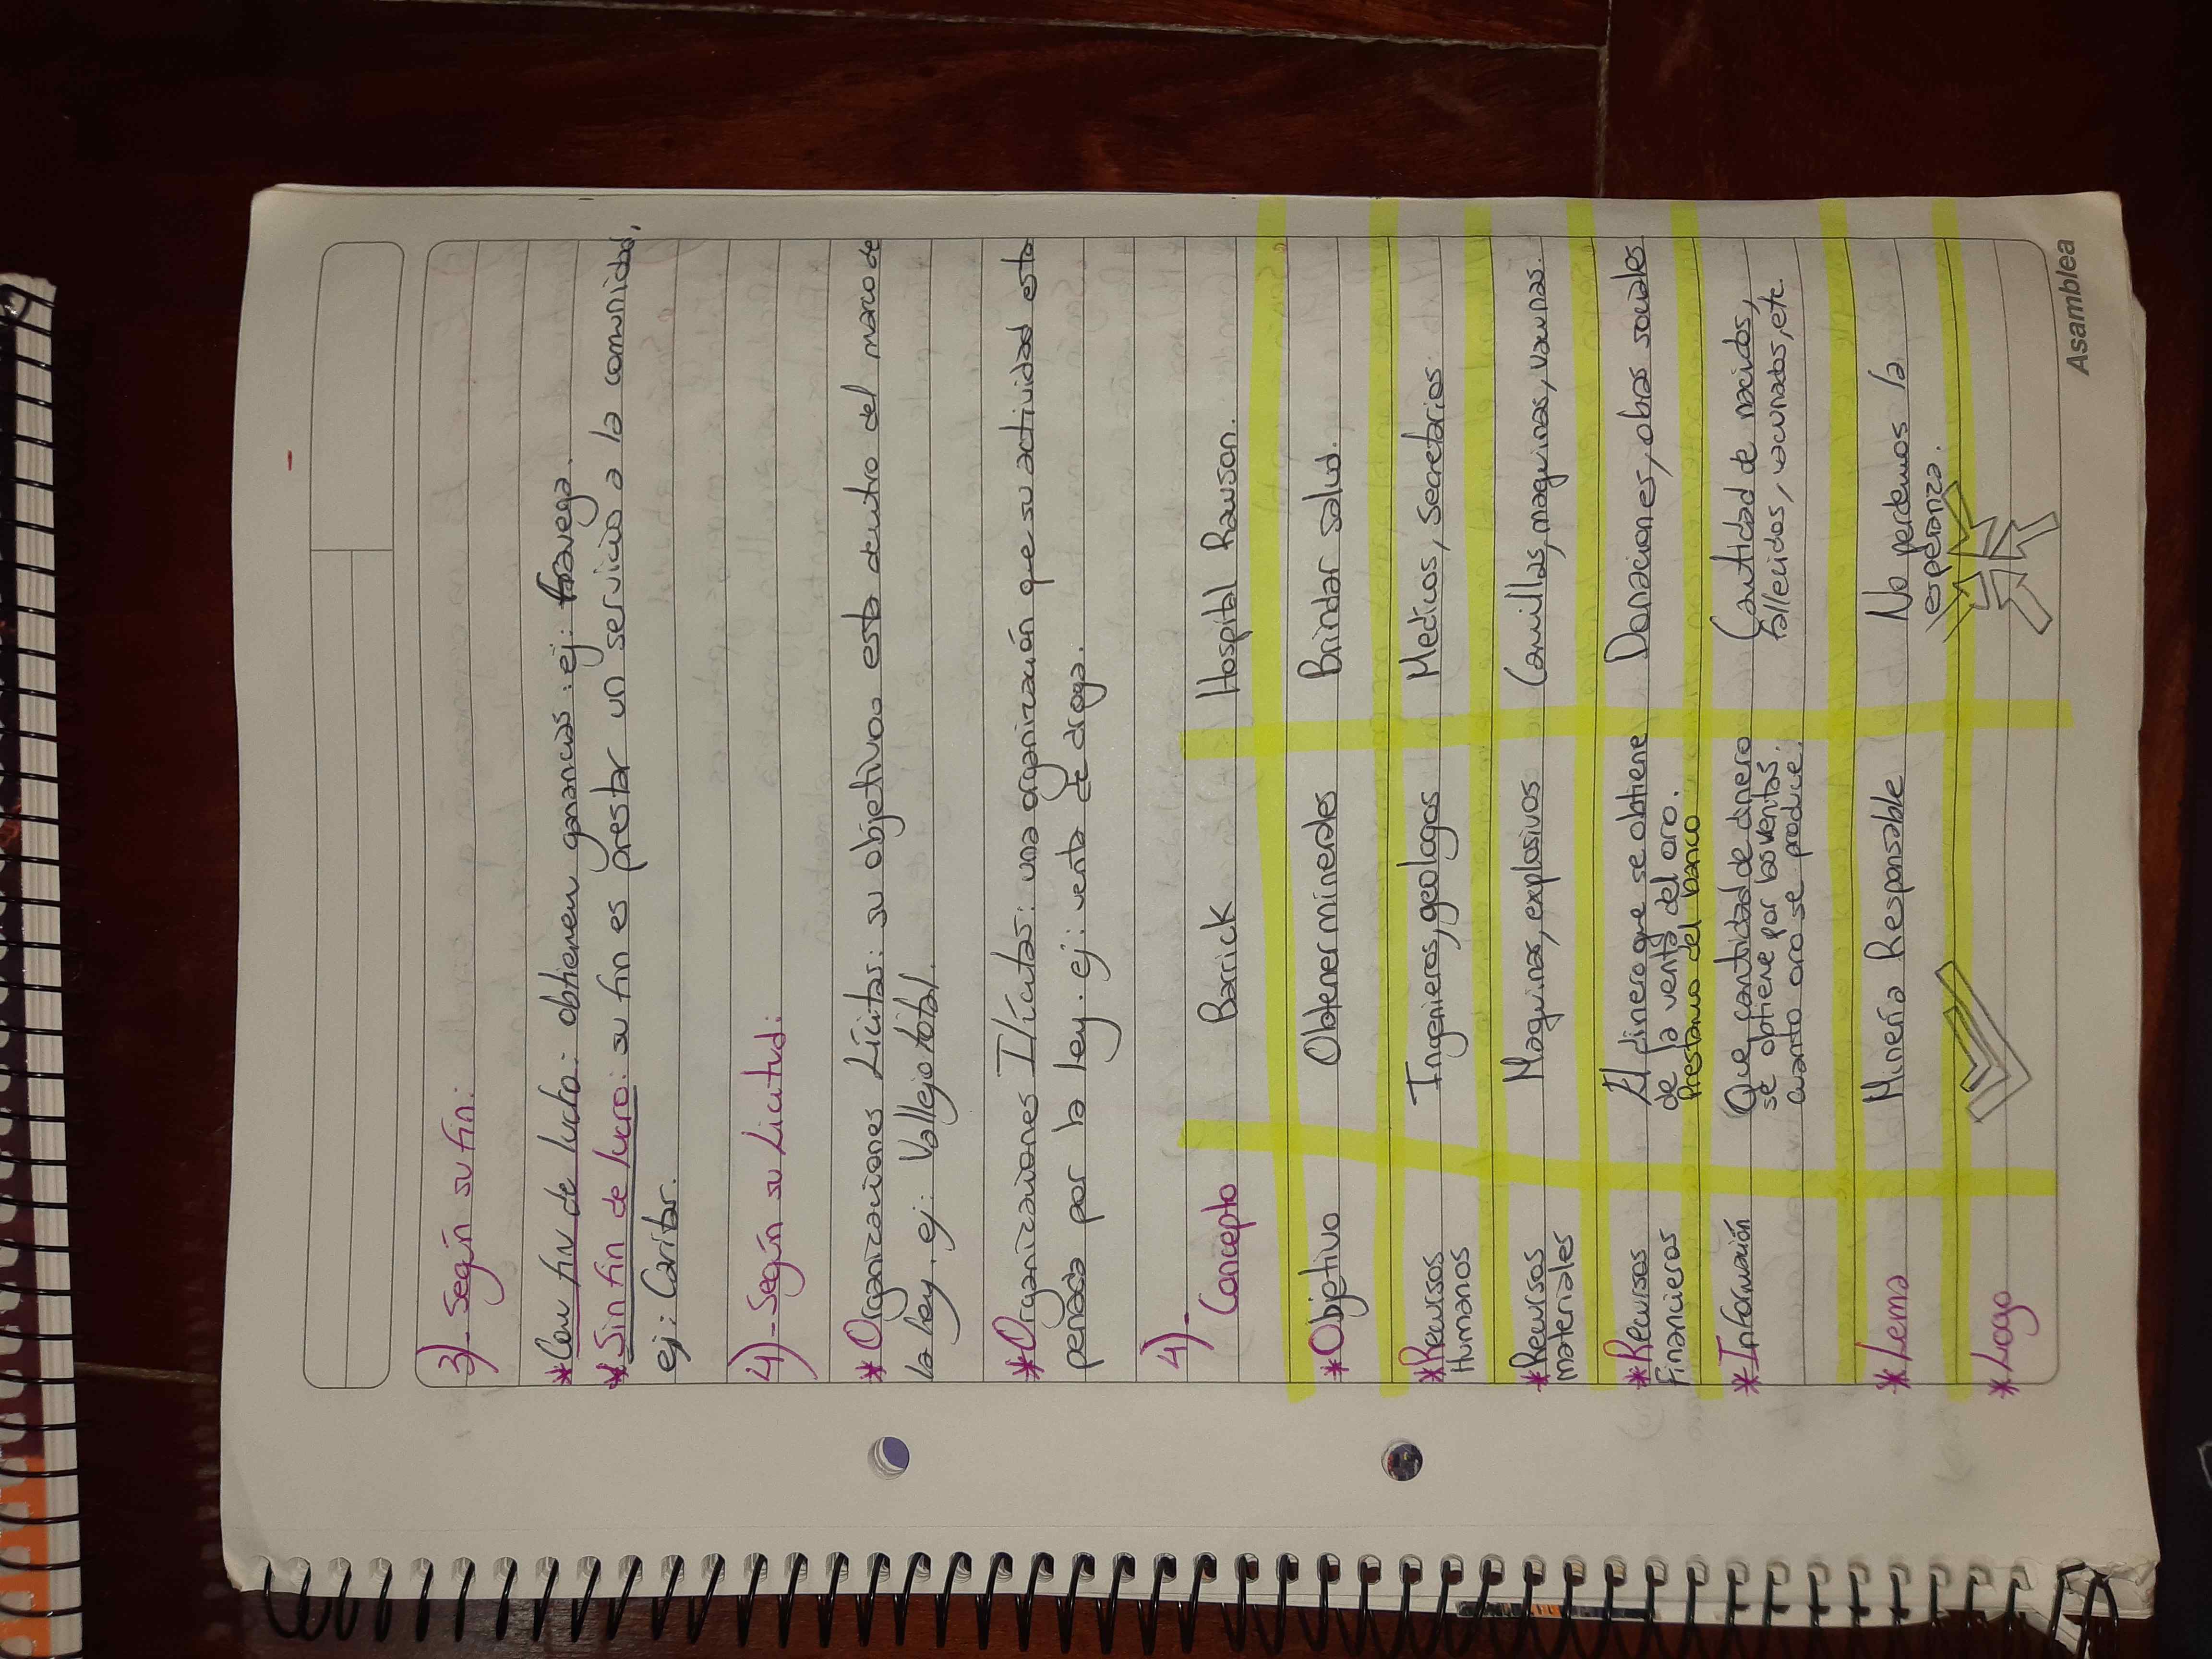 3)- Según su fin:
*Con fin de lucro: obtienen ganancias: ej: fravega.
*Sin fin de lucro: su fin es prestar un servicio a la comunidad,
ej: Caritas.
4)- Según su Licitud:
*Organizaciones Lícitas: su objetivo esta dentro del marco de
la ley. ej: Vallejo total.
*Organizaciones Ilícitas: una organización que su actividad esta
penada por la ley. ej: venta de droga.
4)-
Concepto Barrick Hospital Rawson.
*Objetivo Obtener minerales Brindar salud.
*Recursos Humanos Ingenieros, geologos Medicos, secretarios.
*Recursos materiales Maquinas, explosivos Camillas, maquinas, vacunas.
*Recursos Financieros El dinero que se obtiene de la venta del oro. Prestamo del banco Donaciones, obras sociales
*Información Que cantidad de dinero se obtiene por las ventas. cuanto oro se produce. Cantidad de nacidos, fallecidos, vacunados, etc.
*Lema Minería Responsable No perdemos la esperanza.
*Logo
Asamblea